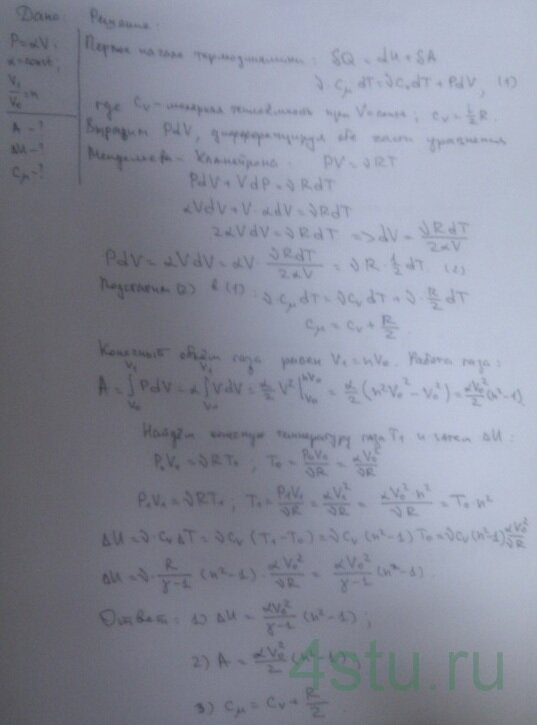 Дано:
P = αV;
α = const;
V₁/V₀ = n
A - ?
ΔU - ?
Cμ - ?
Решение:
Первое начало термодинамики: δQ = dU + δA
ν·Cμ dT = νCv dT + PdV, (1)
где Cv - молярная теплоёмкость при V = const;
Выразим PdV, дифференцируя обе части уравнения
Менделеева - Клапейрона: PV = νRT
PdV + VdP = νRdT
αVdV + V·αdV = νRdT
2αVdV = νRdT => dV = νRdT/2αV
PdV = αVdV = αV · νRdT/2αV = νR · ½dT. (2)
Подставим (2) в (1): ν·Cμ dT = νCv dT + ν·R/2 dT
Cμ = Cv + R/2.
Конечный объём газа равен V₁ = nV₀. Работа газа:
A = ∫PdV = α∫VdV = α/2 V² |ₙV₀ V₀ = α/2 (n²V₀² - V₀²) = αV₀²/2 (n²-1)
Найдём конечную температуру газа T₁ и затем ΔU:
P₀V₀ = νRT₀; T₀ = P₀V₀/νR = αV₀²/νR
P₁V₁ = νRT₁; T₁ = P₁V₁/νR = αV₁²/νR = αV₀²·n²/νR = T₀·n²
ΔU = ν·Cv ΔT = νCv (T₁-T₀) = νCv (n²-1) T₀ = νCv (n²-1) αV₀²/νR
ΔU = ν · R/γ-1 (n²-1) · αV₀²/νR = αV₀²/γ-1 (n²-1).
Ответ: 1) ΔU = αV₀²/γ-1 (n²-1);
2) A = αV₀²/2 (n²-1)
3) Cμ = Cv + R/2
4stu.ru